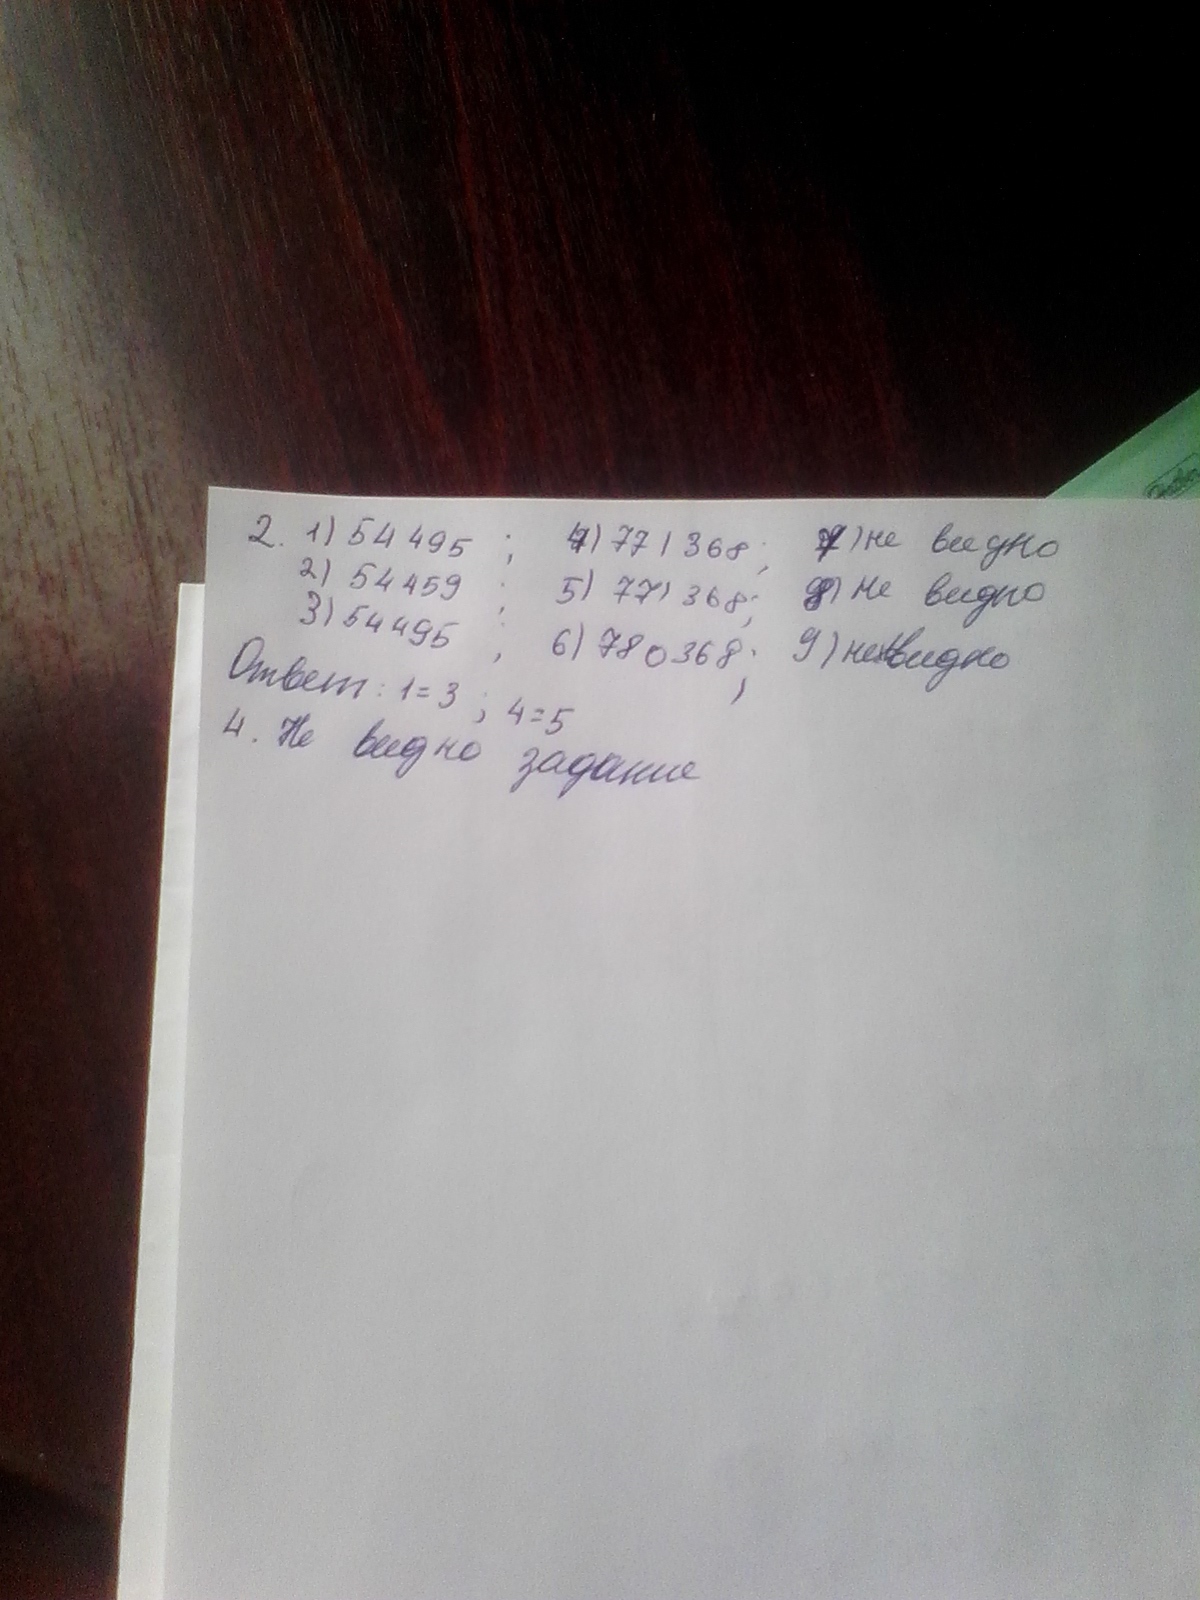 2. 1) 54 495 ; 4) 771 368; 7) не видно
2) 54 459 ; 5) 771 368; 8) не видно
3) 54 495 ; 6) 780 368; 9) не видно
Ответ: 1=3 ; 4=5
4. Не видно задание